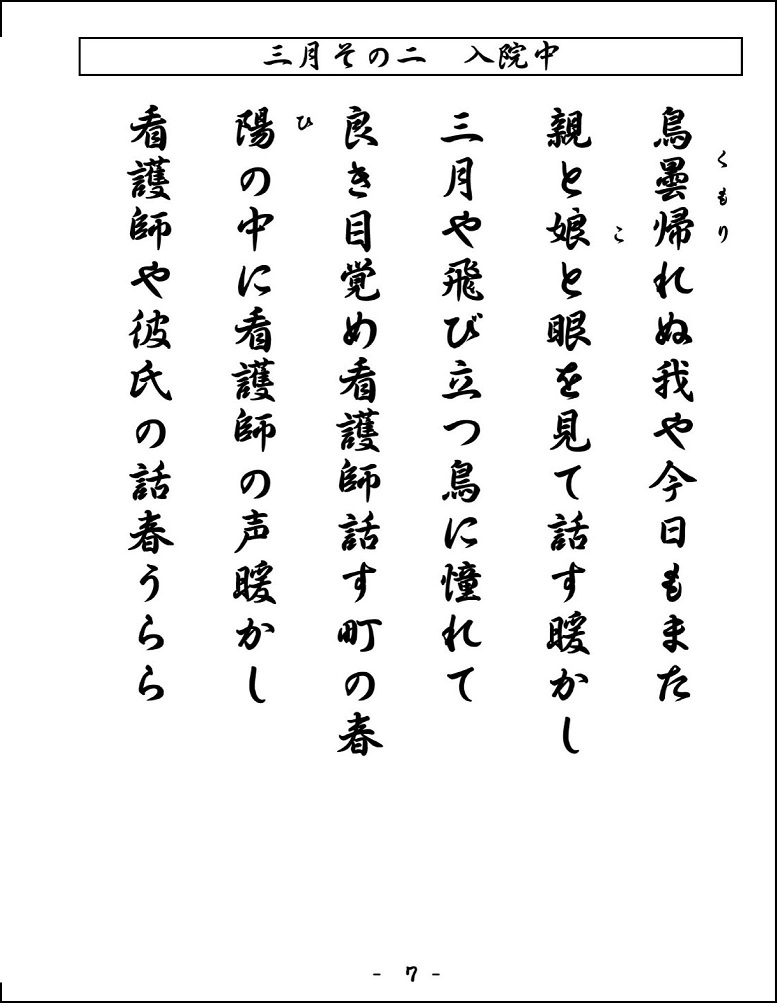 三月その二　入院中
鳥曇帰れぬ我や今日もまた
くもり
親と娘と眼を見て話す暖かし
こ
三月や飛び立つ鳥に憧れて
良き目覚め看護師話す町の春
陽の中に看護師の声暖かし
ひ
看護師や彼氏の話春うらら
- 7 -